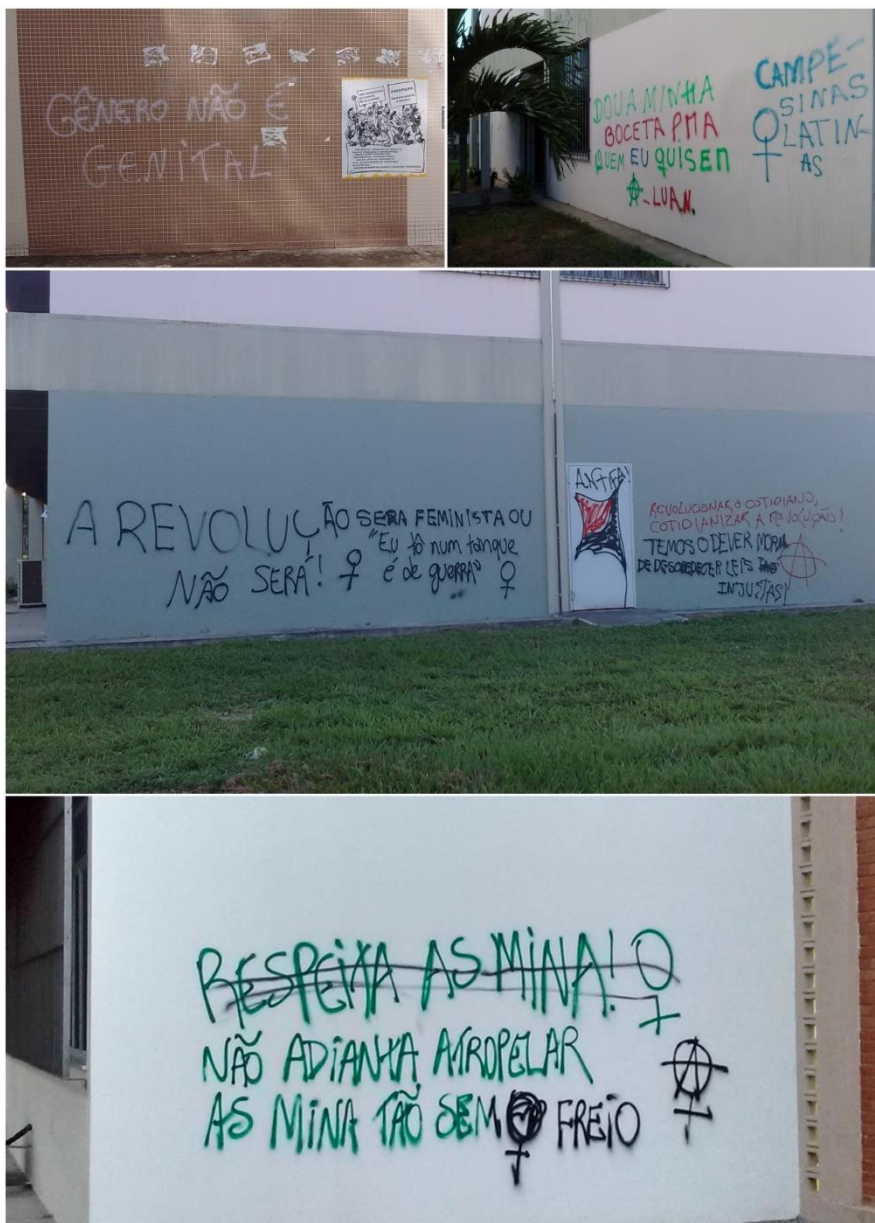 GÊNERO NÃO É
GENITAL
DOU A MINHA
BOCETA PRA
QUEM EU QUISER
A - LUAN.
CAMPE-
SINAS
LATIN-
AS
A REVOLUÇÃO SERA FEMINISTA OU
NÃO SERÁ!
"Eu tô num tanque
é de guerra"
ANTIFA!
REVOLUCIONAR O COTIDIANO,
COTIDIANIZAR A REVOLUÇÃO!
TEMOS O DEVER MORAL
DE DESOBEDECER LEIS
INJUSTAS!
A
RESPEITA AS MINA!
NÃO ADIANTA ATROPELAR
AS MINA TÃO SEM FREIO
A